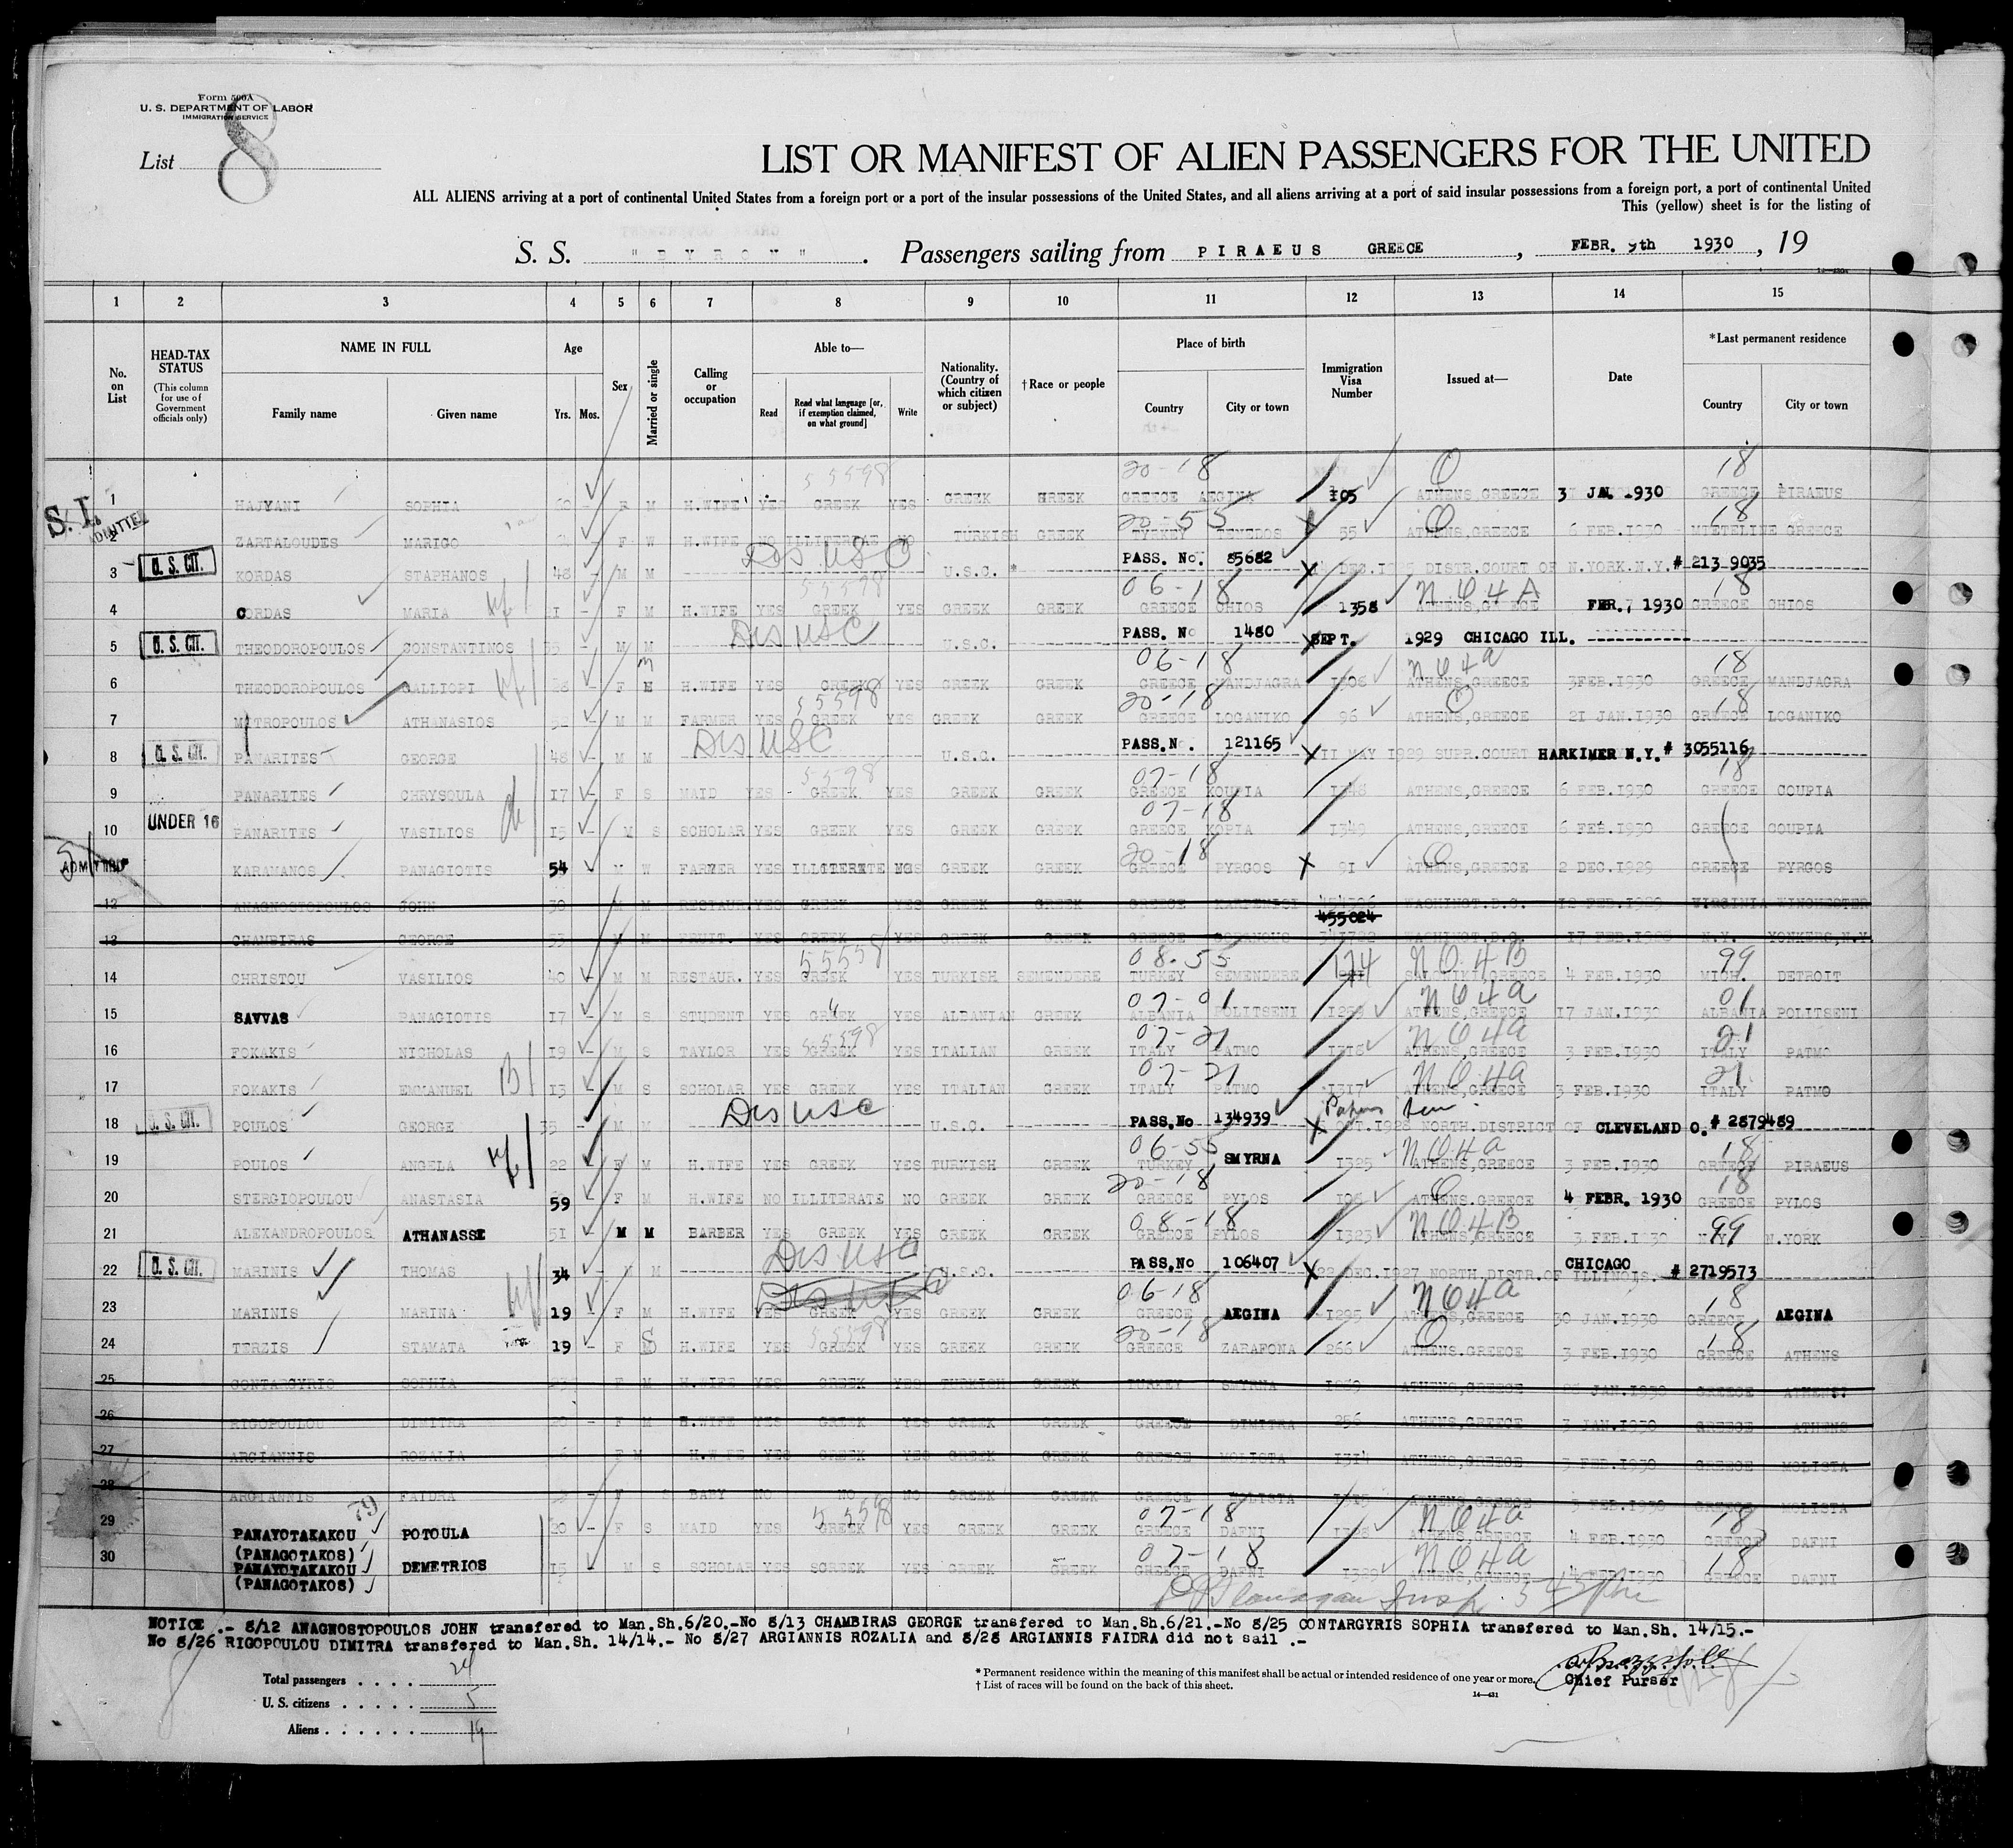 Form 500A
U. S. DEPARTMENT OF LABOR
IMMIGRATION SERVICE
List 8
LIST OR MANIFEST OF ALIEN PASSENGERS FOR THE UNITED
ALL ALIENS arriving at a port of continental United States from a foreign port or a port of the insular possessions of the United States, and all aliens arriving at a port of said insular possessions from a foreign port, a port of continental United
This (yellow) sheet is for the listing of
S. S. " B Y R O N " . Passengers sailing from PIRAEUS GREECE , FEBR. 9th 1930 , 19
1 2 3 4 5 6 7 8 9 10 11 12 13 14 15
No. on List
HEAD-TAX STATUS (This column for use of Government officials only)
NAME IN FULL
Family name Given name
Age
Yrs. Mos.
Sex
Married or single
Calling or occupation
Able to—
Read Read what language [or, if exemption claimed, on what ground] Write
Nationality. (Country of which citizen or subject)
†Race or people
Place of birth
Country City or town
Immigration Visa Number
Issued at—
Date
*Last permanent residence
Country City or town
55598 20-18 O 18
1 HAJYANI SOPHIA 60 - F M H.WIFE YES GREEK YES GREEK GREEK GREECE AEGINA 105 ATHENS,GREECE 3 JAN. 1930 GREECE PIRAEUS
S.I. ADMITTED
20-55 O 18
2 ZARTALOUDES MARIGO F W H.WIFE NO ILLITERAE NO TURKISH GREEK TYRKEY TENEDOS 55 ATHENS,GREECE 6 FEB.1930 MIETELINE GREECE
Dis USC
3 U. S. CIT. KORDAS STAPHANOS 48 - M M U.S.C. * PASS. No. 85682 DEC. DISTR.COURT OF N.YORK.N.Y. # 213 9035
55598 06-18 NO4A 18
4 CORDAS MARIA 21 - F M H.WIFE YES GREEK YES GREEK GREEK GREECE CHIOS 1358 ATHENS,GREECE FEB. 7 1930 GREECE CHIOS
Dis USC
5 U. S. CIT. THEODOROPOULOS CONSTANTINOS M M U.S.C. PASS. No 1480 SEPT. 1929 CHICAGO ILL.
06-18 NO4a 18
6 THEODOROPOULOS GALLIOPI 38 - F M H.WIFE YES GREEK YES GREEK GREEK GREECE MANDJAGRA 1306 ATHENS,GREECE 3FEB.1930 GREECE MANDJAGRA
55598 20-18 O 18
7 MITROPOULOS ATHANASIOS 52 - M M FARMER YES GREEK YES GREEK GREEK GREECE LOGANIKO 96 ATHENS,GREECE 21 JAN.1930 GREECE LOGANIKO
Dis USC
8 U. S. CIT. PANARITES GEORGE 48 - M M U.S.C. PASS.No. 121165 11 MAY 1929 SUPR.COURT HARKIMER N.Y. # 3055116
55598 07-18 18
9 PANARITES CHRYSOULA 17 - F S MAID YES GREEK YES GREEK GREEK GREECE KOUPIA 1348 ATHENS,GREECE 6 FEB.1930 GREECE COUPIA
07-18
10 UNDER 16 PANARITES VASILIOS 15 - M S SCHOLAR YES GREEK YES GREEK GREEK GREECE KOPIA 1349 ATHENS,GREECE 6 FEB.1930 GREECE COUPIA
20-18 O
ADMITTED KARAMANOS PANAGIOTIS 54 M W FARMER YES ILLITERATE NO GREEK GREEK GREECE PYRGOS 91 ATHENS,GREECE 2 DEC.1929 GREECE PYRGOS
12 ANAGNOSTOPOULOS JOHN 30 M M RESTAUR. YES GREEK YES GREEK GREEK GREECE 455024 WASHINGT.D.C. 12 FEB. VIRGINIA WINCHESTER
13 CHAMBIRAS GEORGE 53 M M FRUIT. YES GREEK YES GREEK GREEK GREECE WASHINGT.D.C. 17 FEB. N.Y. YONKERS,N.Y.
55558 08-55 NO4B 99
14 CHRISTOU VASILIOS 40 - M M RESTAUR. YES GREEK YES TURKISH SEMENDERE TURKEY SEMENDERE 174 SALONIKI,GREECE 4 FEB.1930 MICH. DETROIT
07-01 NO4a 01
15 SAVVAS PANAGIOTIS 17 - M S STUDENT YES GREEK YES ALBANIAN GREEK ALBANIA POLITSENI ATHENS,GREECE 17 JAN.1930 ALBANIA POLITSENI
55598 07-21 NO4a 21
16 FOKAKIS NICHOLAS 19 - M S TAYLOR YES GREEK YES ITALIAN GREEK ITALY PATMO 1316 ATHENS,GREECE 3 FEB.1930 ITALY PATMO
07-21 NO4a 21
17 FOKAKIS EMMANUEL 13 - M S SCHOLAR YES GREEK YES ITALIAN GREEK ITALY PATMO 1317 ATHENS,GREECE 3 FEB.1930 ITALY PATMO
Dis USC
18 U. S. CIT. POULOS GEORGE 35 - M M U.S.C. PASS.No 134939 OCT.1928 NORTH.DISTRICT OF CLEVELAND O. # 2879489
06-55 NO4a 18
19 POULOS ANGELA 22 - F M H.WIFE YES GREEK YES TURKISH GREEK TURKEY SMYRNA 1325 ATHENS,GREECE 3 FEB.1930 GREECE PIRAEUS
20-18 O 18
20 STERGIOPOULOU ANASTASIA 59 - F M H.WIFE NO ILLITERATE NO GREEK GREEK GREECE PYLOS 106 ATHENS.GREECE 4 FEBR. 1930 GREECE PYLOS
08-18 NO4B 99
21 ALEXANDROPOULOS ATHANASSE 51 - M M BARBER YES GREEK YES GREEK GREEK GREECE PYLOS 1323 ATHENS,GREECE 3 FEB.1930 N.Y. N.YORK
Dis USC
22 U. S. CIT. MARINIS THOMAS 34 M M U.S.C. PASS.No 106407 22 DEC.1927 NORTH.DISTR.OF ILLINOIS. CHICAGO # 2719573
Dis USC 06-18 NO4a 18
23 MARINIS MARINA 19 - F M H.WIFE YES GREEK YES GREEK GREEK GREECE AEGINA 1295 ATHENS,GREECE 30 JAN.1930 GREECE AEGINA
55598 20-18 O 18
24 TERZIS STAMATA 19 - F S H.WIFE YES GREEK YES GREEK GREEK GREECE ZARAFONA 266 ATHENS.GREECE 3 FEB.1930 GREECE ATHENS
25 CONTARGYRIS SOPHIA 23 F M H.WIFE YES GREEK YES TURKISH GREEK TURKEY SMYRNA ATHENS,GREECE JAN.1930 GREECE ATHENS
26 RIGOPOULOU DIMITRA 20 - F M H.WIFE YES GREEK YES GREEK GREEK GREECE DIMITRA 256 ATHENS,GREECE 3 JAN.1930 GREECE ATHENS
27 ARGIANNIS ROZALIA F M H.WIFE YES GREEK YES GREEK GREEK GREECE MOLISTA 1314 ATHENS,GREECE 3 FEB.1930 GREECE MOLISTA
28 ARGIANNIS FAIDRA - F S BABY NO NO NO GREEK GREEK GREECE MOLISTA ATHENS,GREECE 3 FEB.1930 GREECE MOLISTA
79 55598 07-18 NO4a 18
29 PANAYOTAKAKOU POTOULA 20 - F S MAID YES GREEK YES GREEK GREEK GREECE DAFNI 1328 ATHENS,GREECE 4 FEB.1930 GREECE DAFNI
(PANAGOTAKOS)
07-18 NO4a 18
30 PANAYOTAKAKOU DEMETRIOS 15 - M S SCHOLAR YES GREEK YES GREEK GREEK GREECE DAFNI 1329 ATHENS,GREECE 4 FEB.1930 GREECE DAFNI
(PANAGOTAKOS)
NOTICE .- 8/12 ANAGNOSTOPOULOS JOHN transfered to Man.Sh.6/20.-No 8/13 CHAMBIRAS GEORGE transfered to Man.Sh.6/21.-No 8/25 CONTARGYRIS SOPHIA transfered to Man.Sh. 14/15.-
No 8/26 RIGOPOULOU DIMITRA transfered to Man.Sh. 14/14.- No 8/27 ARGIANNIS ROZALIA and 8/28 ARGIANNIS FAIDRA did not sail .-
Total passengers . . . . 24
U. S. citizens . . . . . 5
Aliens . . . . . . 19
* Permanent residence within the meaning of this manifest shall be actual or intended residence of one year or more.
† List of races will be found on the back of this sheet.
14—431
Chief Purser